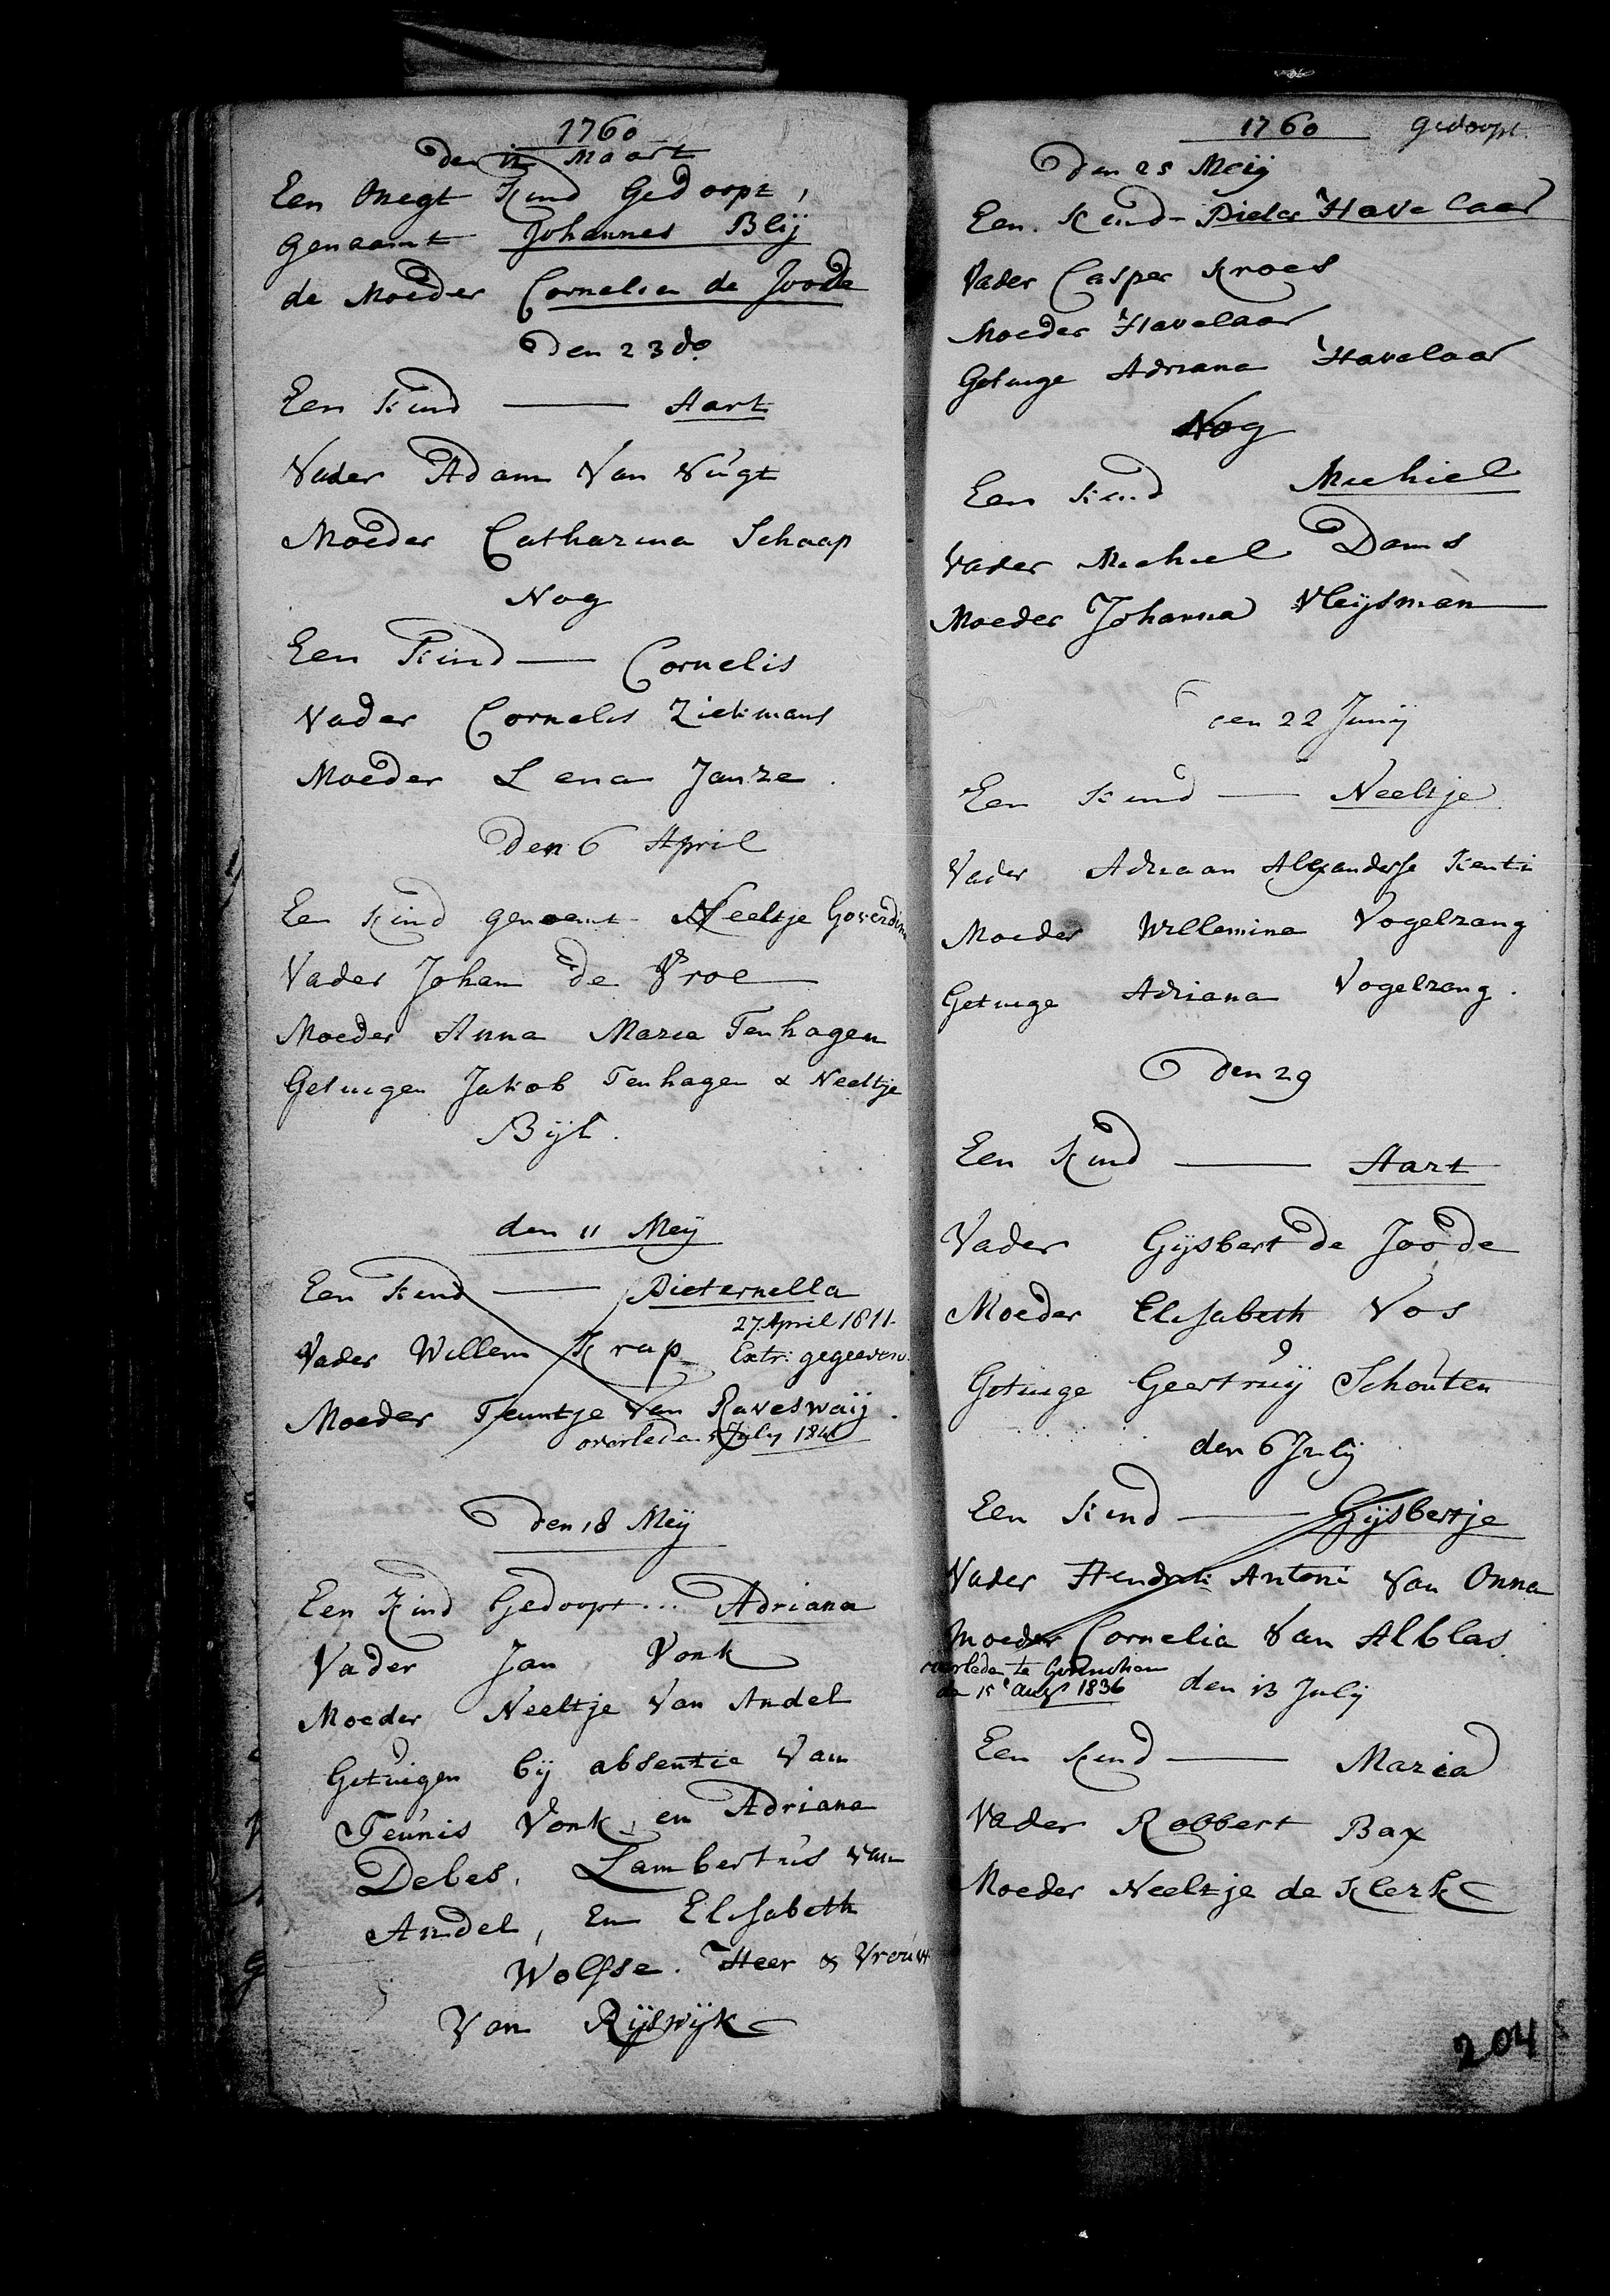 1760
den 12 Maart
Een Onegt Kind Gedoopt,
Genaamt Johannes Blij
de Moeder Cornelia de Joode
Den 23 do
Een Kind — Aart
Vader Adam Van Vugt
Moeder Catharina Schaap
Nog
Een Kind — Cornelis
Vader Cornelis Ziekmans
Moeder Lena Janze.
Den 6 April
Een Kind genaemt Neeltje Goverdina
Vader Johan de Vroe
Moeder Anna Maria Tenhagen
Getuigen Jakob Tenhagen & Neeltje
Bijl.
den 11 Meij
Een Kind — Pieternella
27 April 1811.
Vader Willem Krap Extr: gegeeven.
Moeder Teuntje Van Raveswaij.
overleden July 1841
Den 18 Meij
Een Kind Gedoopt... Adriana
Vader Jan Vonk
Moeder Neeltje Van Andel
Getuigen bij absentie Van
Teunis Vonk, en Adriana
Debes, Lambertus van
Andel, En Elisabeth
Wolfse. Heer & Vrouw
Van Rijswijk
1760 gedoopt.
Den 25 Meij
Een Kind - Pieter Havelaar
Vader Casper Kroes
Moeder Havelaar
Getuige Adriana Havelaar
Nog
Een Kind Michiel
Vader Michiel Dams
Moeder Johanna Vleijsman
den 22 Junij
Een Kind — Neeltje
Vader Adriaan Alexanderse
Moeder Willemina Vogelzang
Getuige Adriana Vogelzang.
Den 29
Een Kind — Aart
Vader Gijsbert de Joode
Moeder Elisabeth Vos
Getuige Geertruij Schouten
den 6 Julij
Een Kind — Gijsbertje
Vader Hendrik Antoni Van Onna
Moeder Cornelia Van Alblas
overleden te Gorinchem
den 15e Augs 1836 den 13 Julij
Een Kind — Maria
Vader Robbert Bax
Moeder Neeltje de Klerk
204